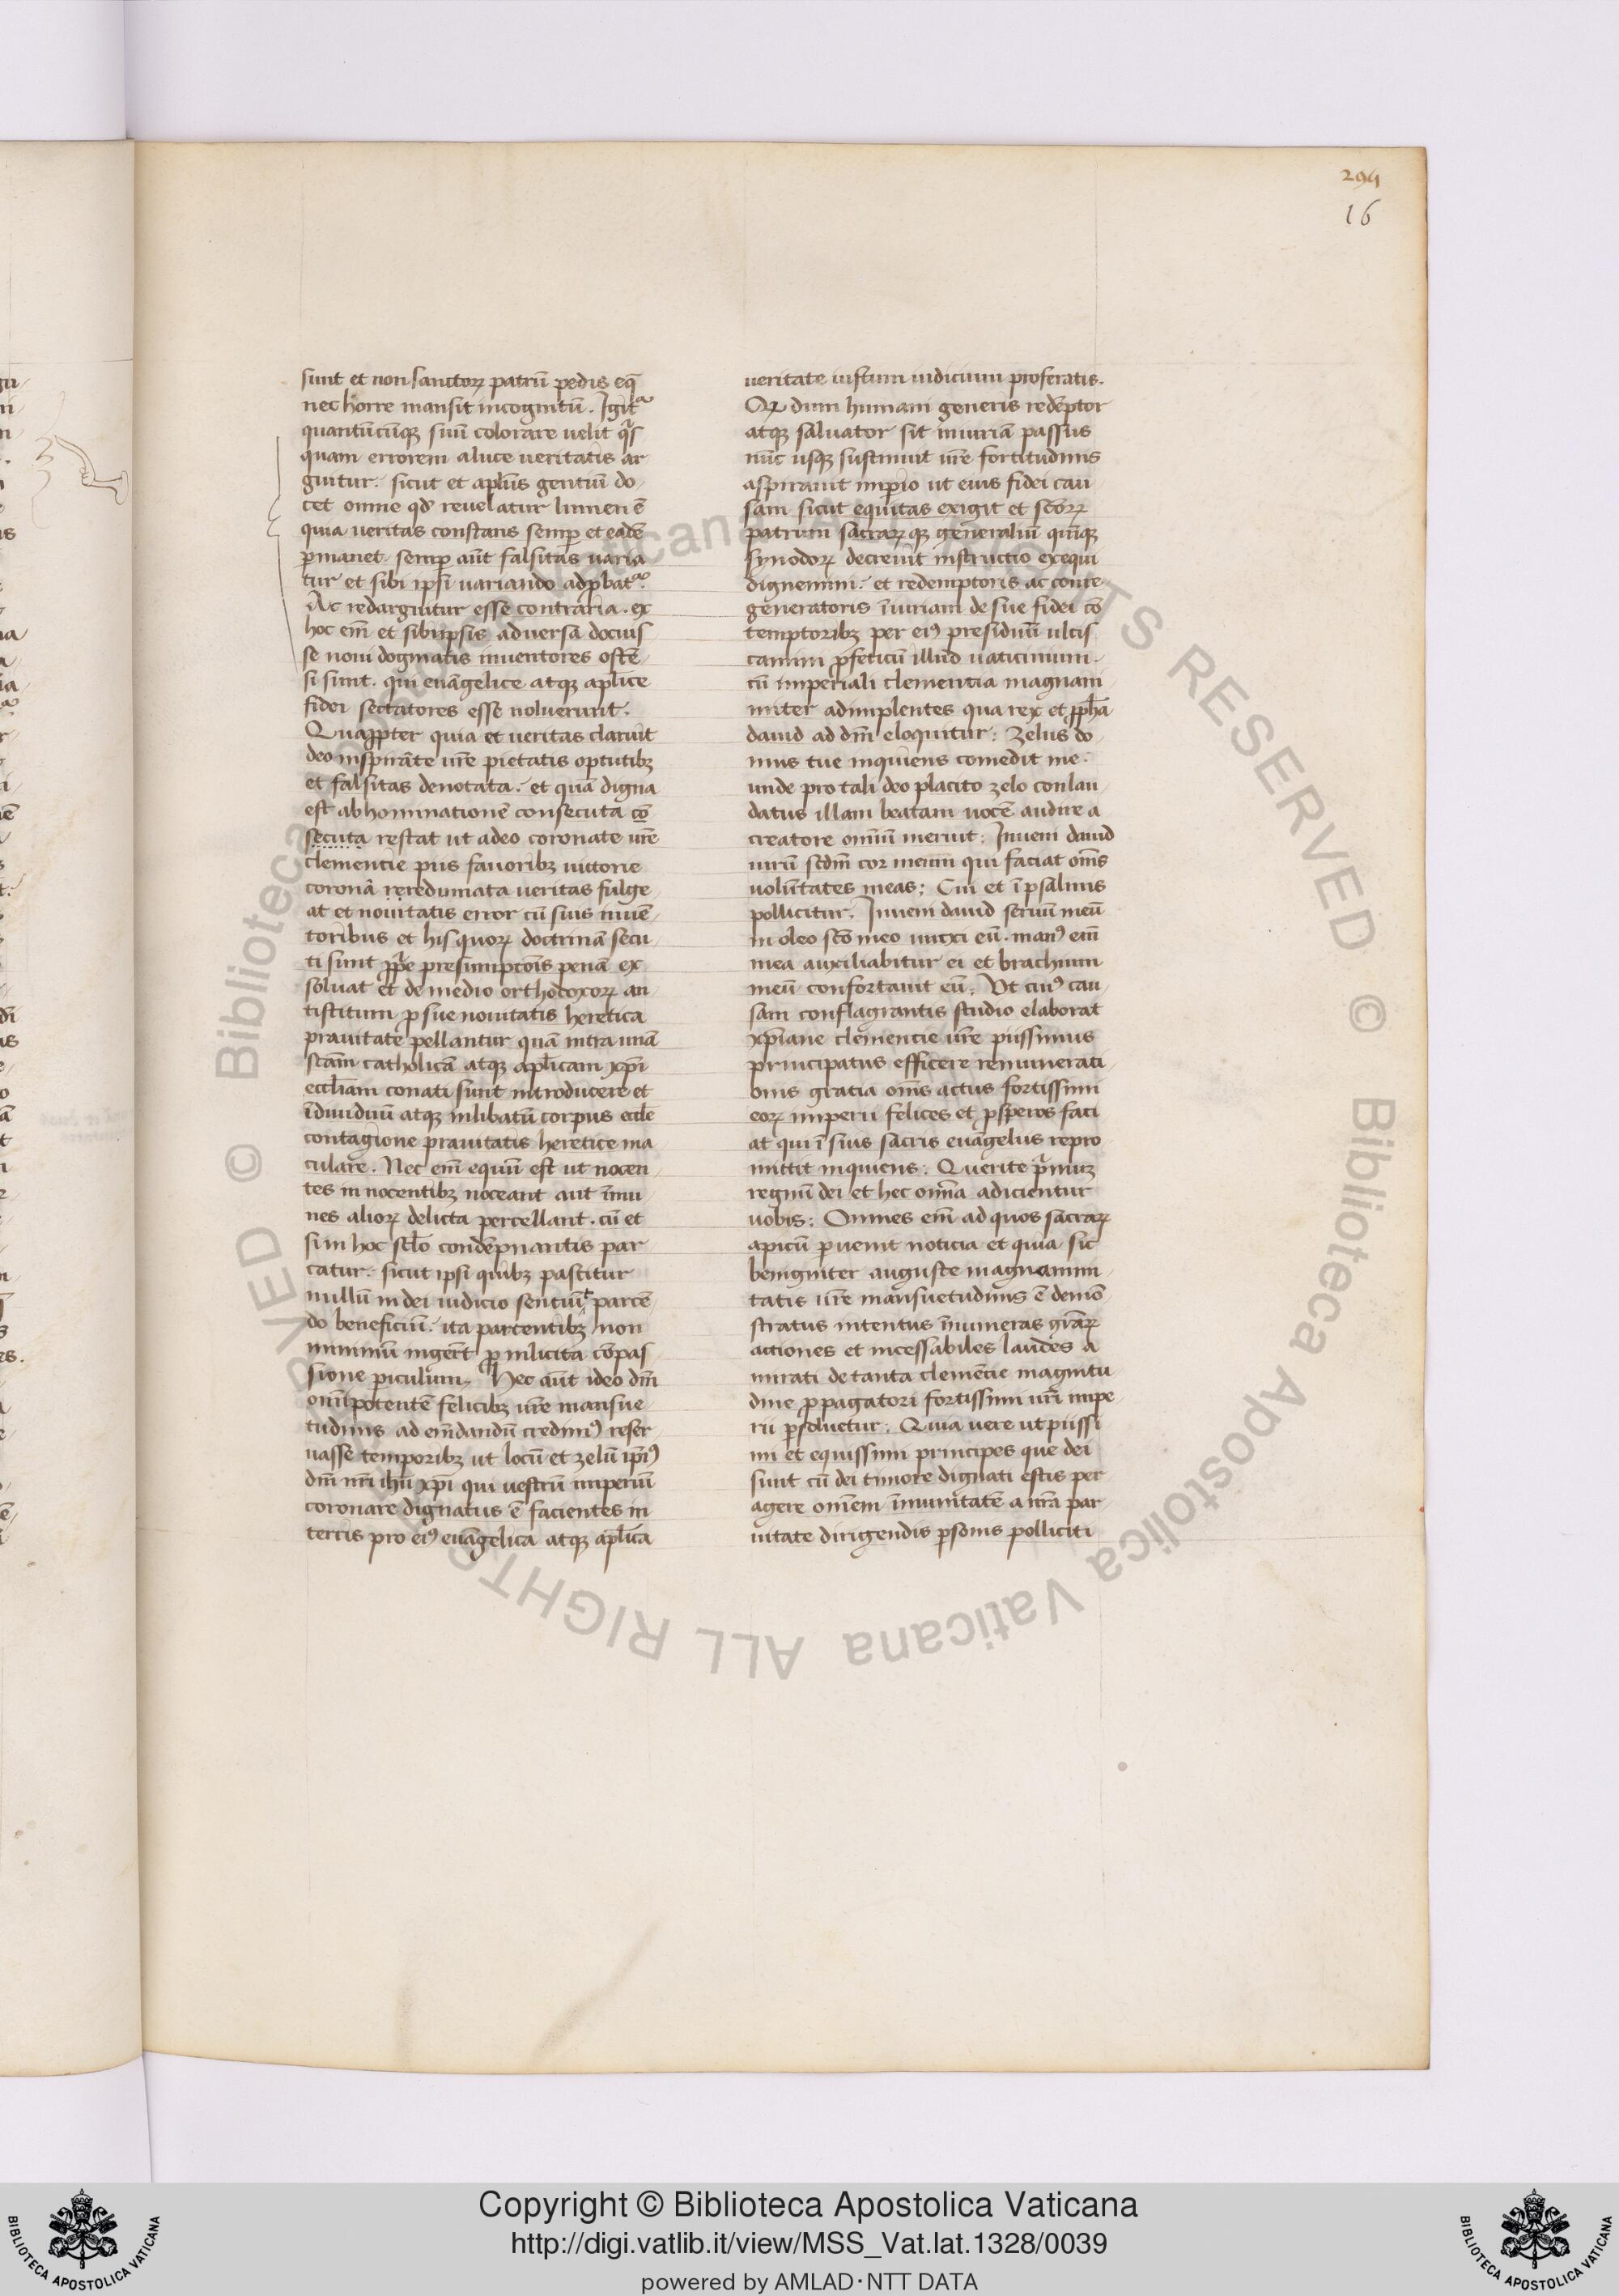 294
16
sunt et non sanctoꝝ patrū pedis eq̄
nec horre mansit incognitū. Igit᷑
quantūcūqꝫ suū colorare uelit q̄s
quam errorem a luce ueritatis ar
guitur. sicut et apl̄us gentiū do
cet omne qd̄ reuelatur lumen ē
quia ueritas constans semꝑ et eadē
ꝑmanet. semꝑ aūt falsitas uaria
tur et sibi ipsi uariando adꝓbat᷑.
Ac redarguitur esse contraria. ex
hoc em̄ et sibi ipsis aduersa docuis
se noui dogmatis inuentores ostē
si sunt. qui euāgelice atqꝫ aplice
fidei sectatores esse noluerunt.
Quaꝓpter quia et ueritas claruit
deo inspirāte ur̄e pietatis optutibꝫ
et falsitas denotata. et quā digna
est abhominationē consecuta cō
secuta restat ut adeo coronate ur̄e
clementie piis fauoribꝫ uictorie
coronā reredimata ueritas fulge
at et nouitatis error cū suis inuē
toribus et his quoꝝ doctrinā secu
ti sunt ꝓp̄e presumptōis penā ex
soluat et de medio orthodoxoꝝ an
tistitum ꝓ sue nouitatis heretica
prauitate pellantur quā intra unā
sc̄am catholicā atqꝫ apl̄icam xp̄i
eccl̄iam conati sunt introducere et
īdiuiduū atqꝫ inlibatū corpus eccle
contagione prauitatis heretice ma
culare. Nec em̄ equū est ut nocen
tes innocentibꝫ noceant aut īmu
nes alioꝝ delicta percellant. cū et
si in hoc sc̄lo condēpnantis par
catur. sicut ipsi quibꝫ parcitur
nullū in dei iudicio sentiūt parcē
do beneficiū. ita parcentibꝫ non
minimū ingerīt ꝓ inlicita cōpas
sione periculum. Hec aūt ideo dm̄
omīpotentē felicibꝫ ur̄e mansue
tudinis ad emēdandū credimꝰ reser
uasse temporibꝫ ut locū et zelū ip̄iꝰ
dm̄ nr̄i ihū xp̄i qui uestrū imperiū
coronare dignatus ē facientes in
terris pro eiꝰ euāgelica atqꝫ apl̄ica
ueritate iustum iudicium proferatis.
Qꝝ dum humani generis redēptor
atqꝫ saluator sit iniuriā passus
nūc usqꝫ sustinuit ur̄e fortitudinis
aspirauit imꝑio ut eius fidei cau
sam sicut equitas exigit et sc̄oꝝ
patrum sacraꝝ qꝫ generaliū quīqꝫ
synodoꝝ decreuit instructio exequi
dignemini. et redemptoris ac conre
generatoris īiuriam de sue fidei cō
temptoribꝫ per eiꝰ presidiuū ulcis
camini ꝓfeticū illud uaticinium.
cū imperiali clementia magnani
miter adimplentes qua rex et ꝓph̄a
dauid ad dm̄ eloquitur: Zelus do
mus tue inquiens comedit me.
unde pro tali deo placito zelo conlau
datus illam beatam uocē audire a
creatore omniū meruit: Inueni dauid
uirū scdm̄ cor meum qui faciat om̄s
uolūtates meas: Cui et ī psalmis
pollicitur. Inueni dauid seruū meū
in oleo sc̄o meo unxi eū. manꝰ em̄
mea auxiliabitur ei et brachium
meū confortauit eū. Ut cuiꝰ cau
sam conflagrantis studio elaborat
xp̄iane clementie ur̄e piissimus
principatus efficere remunerati
onis gratia om̄s actus fortissimi
eoꝝ imperii felices et ꝓsperos faci
at qui ī suis sacris euāgeliis repro
mittit inquiens: Querite p̄muꝫ
regnū dei et hec om̄ia adicientur
uobis: Omnes em̄ ad quos sacraꝝ
apicū ꝑuenit noticia et quia sic
benigniter auguste magnanimi
tatis ur̄e mansuetudinis ē demō
stratus intentus īnumeras gr̄aꝝ
actiones et incessabiles laudes a
mirati de tanta clemētie magnitu
dine ꝓpagatori fortissimi ur̄i impe
rii ꝑsoluetur: Quia uere ut piissi
mi et equissimi principes que dei
sunt cū dei timore dignati estis per
agere omēm īmunitatē a nr̄a par
uitate dirigendis ꝑsonis polliciti
Copyright © Biblioteca Apostolica Vaticana
http://digi.vatlib.it/view/MSS_Vat.lat.1328/0039
powered by AMLAD·NTT DATA
BIBLIOTECA APOSTOLICA VATICANA
BIBLIOTECA APOSTOLICA VATICANA
© Biblioteca Apostolica Vaticana ALL RIGHTS RESERVED © Biblioteca Apostolica Vaticana ALL RIGHTS RESERVED